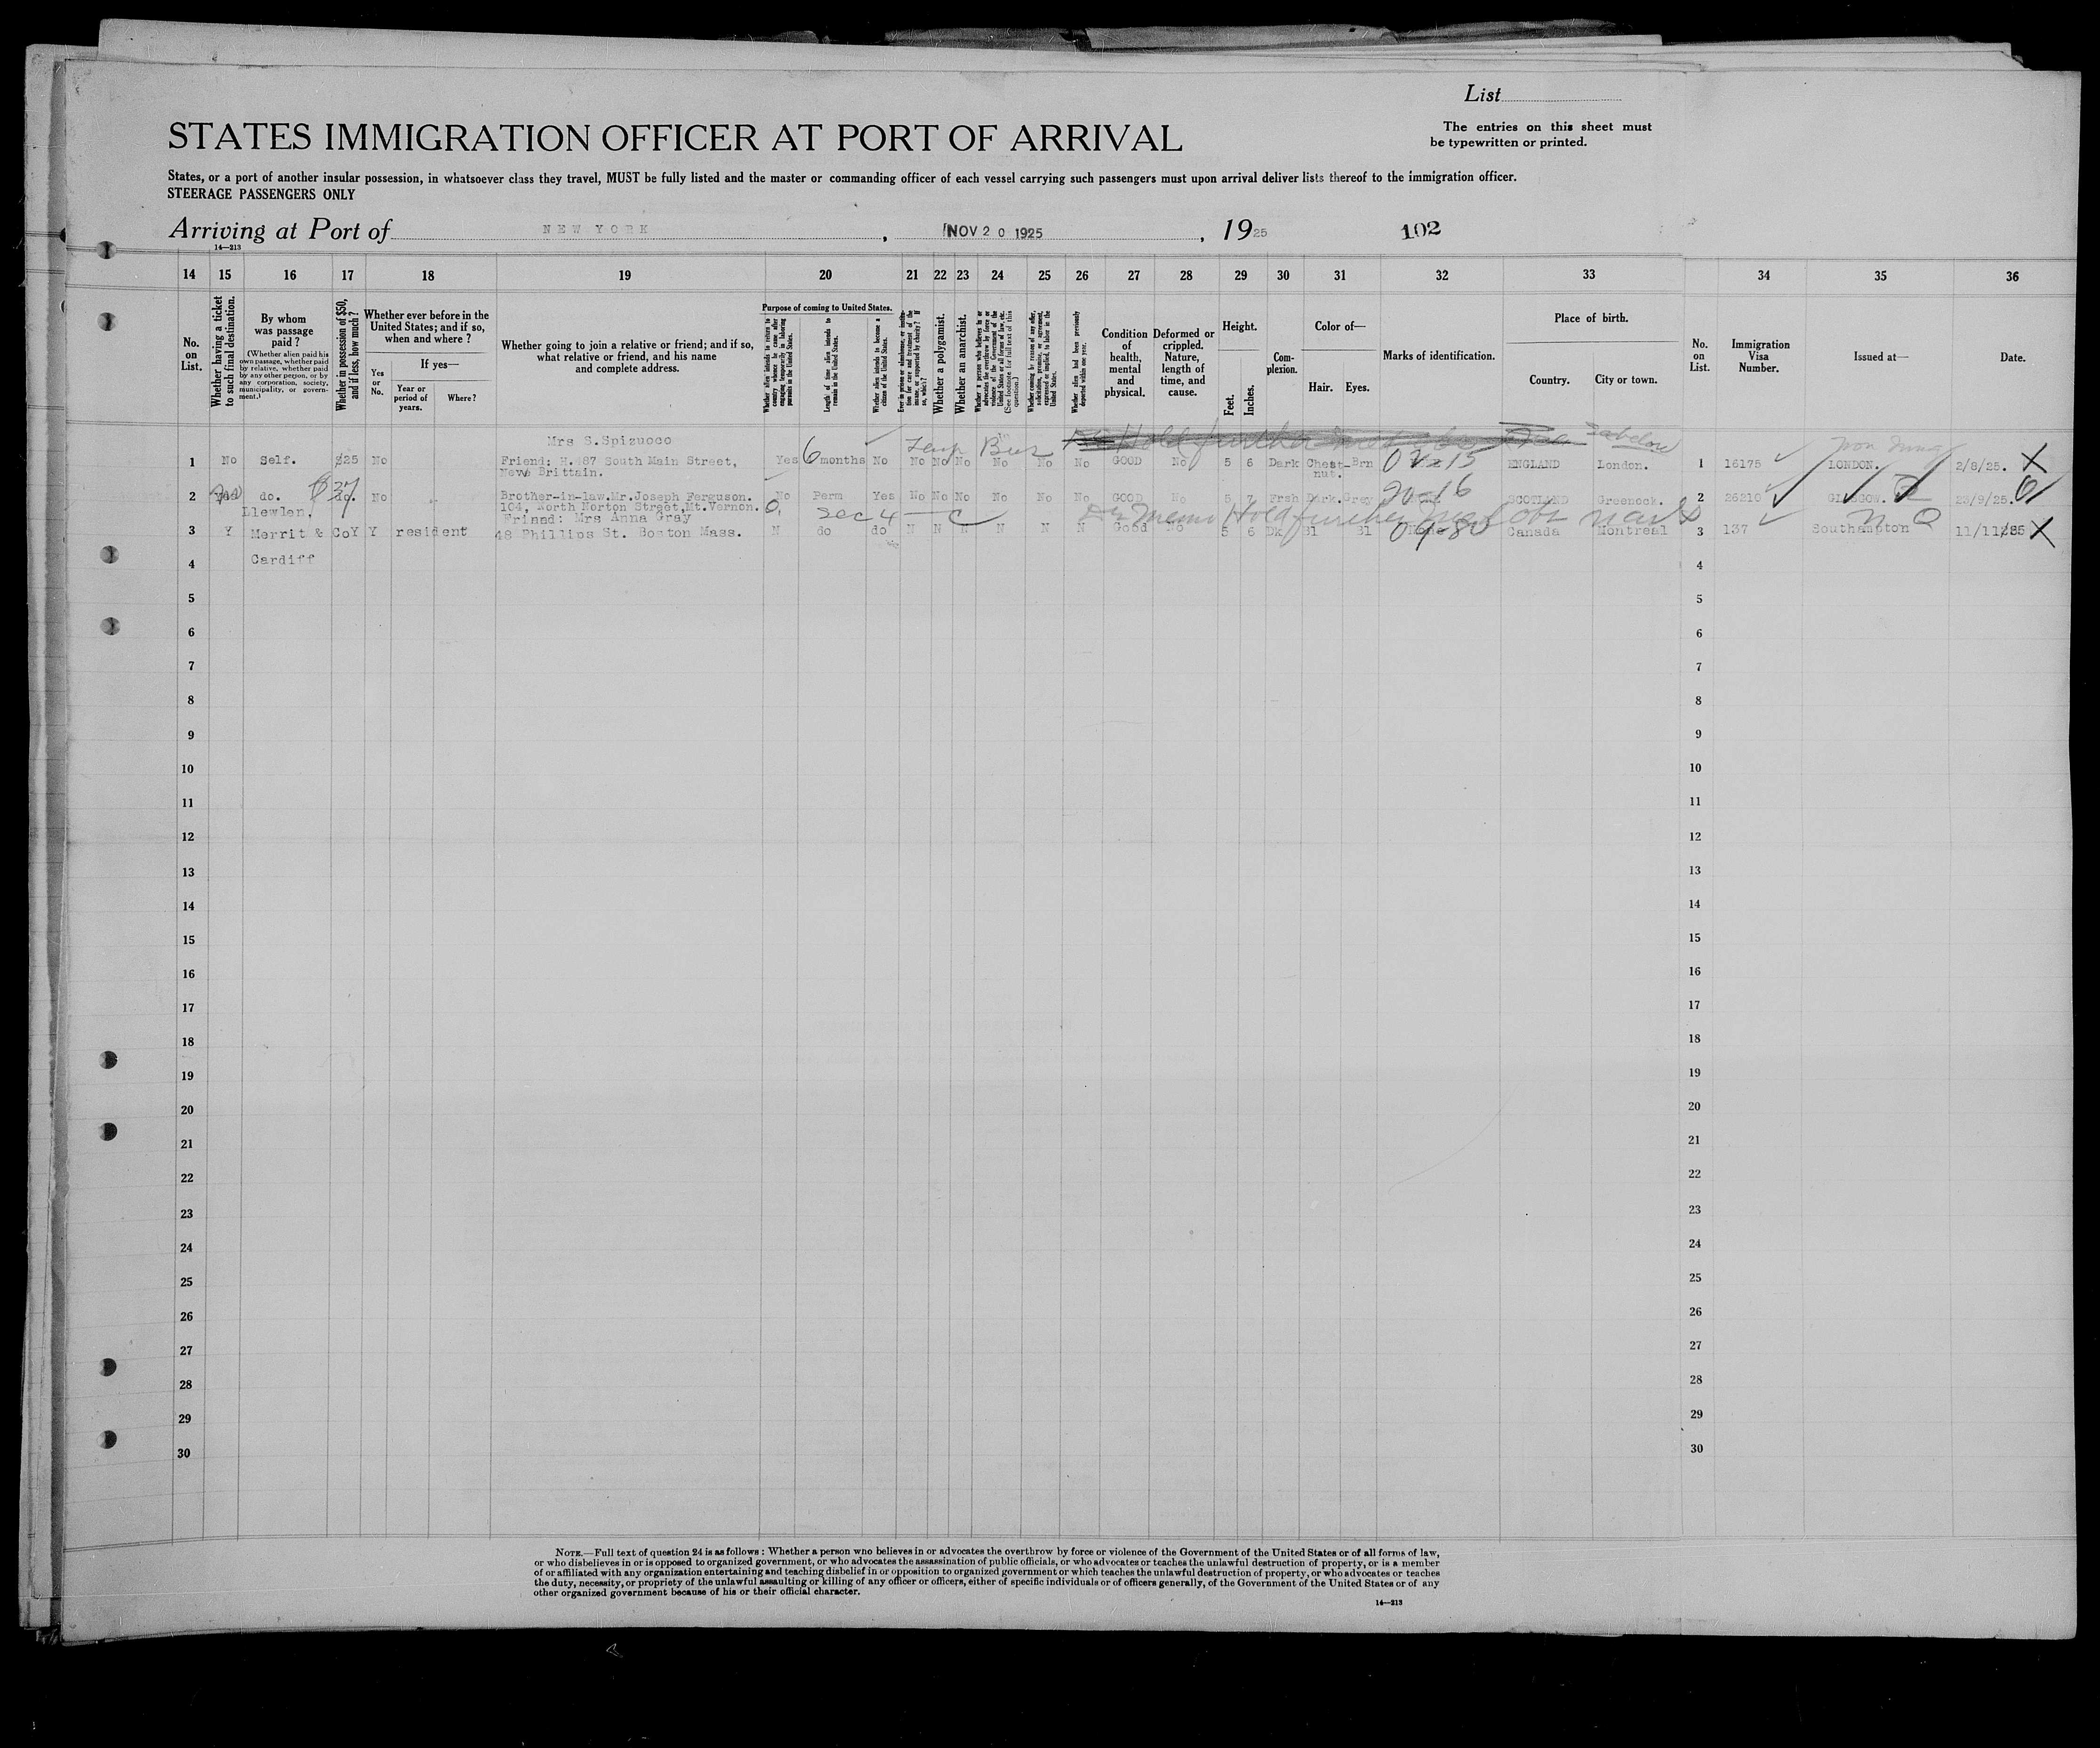 List
The entries on this sheet must
be typewritten or printed.
STATES IMMIGRATION OFFICER AT PORT OF ARRIVAL
States, or a port of another insular possession, in whatsoever class they travel, MUST be fully listed and the master or commanding officer of each vessel carrying such passengers must upon arrival deliver lists thereof to the immigration officer.
STEERAGE PASSENGERS ONLY
Arriving at Port of NEW YORK, NOV 20 1925, 1925 102
14—213
14 15 16 17 18 19 20 21 22 23 24 25 26 27 28 29 30 31 32 33 34 35 36
No. on List.
Whether having a ticket to such final destination.
By whom was passage paid?
(Whether alien paid his own passage, whether paid by relative, whether paid by any other person, or by any corporation, society, municipality, or government.)
Whether in possession of $50, and if less, how much?
Whether ever before in the United States; and if so, when and where?
Yes or No.
If yes—
Year or period of years.
Where?
Whether going to join a relative or friend; and if so, what relative or friend, and his name and complete address.
Purpose of coming to United States.
Whether alien intends to return to country whence he came after engaging temporarily in laboring pursuits in the United States.
Length of time alien intends to remain in the United States.
Whether alien intends to become a citizen of the United States.
Whether a polygamist.
Whether an anarchist.
Whether alien had been previously deported within one year.
Condition of health, mental and physical.
Deformed or crippled. Nature, length of time, and cause.
Height.
Feet.
Inches.
Complexion.
Color of—
Hair.
Eyes.
Marks of identification.
Place of birth.
Country.
City or town.
No. on List.
Immigration Visa Number.
Issued at—
Date.
Mrs S.Spizuoco
1 No Self. $25 No Friend: H.487 South Main Street, Yes 6 months No No No No No No No GOOD No 5 6 Dark Chest- Brn ENGLAND London. 1 16175 LONDON. 2/8/25. X
New Brittain. nut.
Temp Bus
2 do. $37 No Brother-in-law.Mr.Joseph Ferguson. No Perm Yes No No No No No No GOOD No 5 7 Frsh Dark. Grey SCOTLAND Greenock. 2 26210 GLASGOW. 23/9/25.
104, North Norton Street,Mt.Vernon.
Llewlen, Friend: Mrs Anna Gray
Sec 4 Hold further
3 Y Merrit & Co Y Y resident 48 Phillips St. Boston Mass. N do do N N N N N N Good No 5 6 Dk Bl Bl Canada Montreal 3 137 Southampton 11/11/25 X
4 Cardiff 4
5 5
6 6
7 7
8 8
9 9
10 10
11 11
12 12
13 13
14 14
15 15
16 16
17 17
18 18
19 19
20 20
21 21
22 22
23 23
24 24
25 25
26 26
27 27
28 28
29 29
30 30
NOTE.—Full text of question 24 is as follows: Whether a person who believes in or advocates the overthrow by force or violence of the Government of the United States or of all forms of law,
or who disbelieves in or is opposed to organized government, or who advocates the assassination of public officials, or who advocates or teaches the unlawful destruction of property, or is a member
of or affiliated with any organization entertaining and teaching disbelief in or opposition to organized government or which teaches the unlawful destruction of property, or who advocates or teaches
the duty, necessity, or propriety of the unlawful assaulting or killing of any officer or officers, either of specific individuals or of officers generally, of the Government of the United States or of any
other organized government because of his or their official character.
14—213